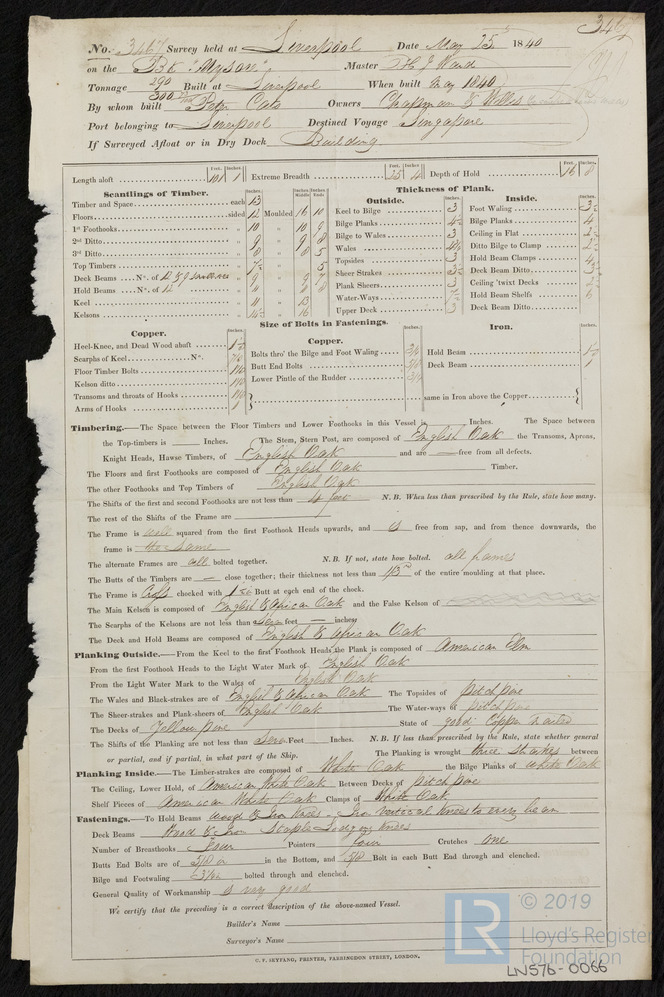 3467
No. 3467 Survey held at Liverpool Date May 25 1840
on the Bk "Mysore" Master H J Ward
Tonnage 290 Built at Liverpool When built May 1840
300 By whom built Peter Cato Owners Chapman &
Port belonging to Liverpool Destined Voyage Singapore
If Surveyed Afloat or in Dry Dock Building
Feet. Inches. Feet. Inches. Feet. Inches.
Length aloft 101 1 Extreme Breadth 25 4 Depth of Hold 16 8
Scantlings of Timber. Thickness of Plank.
Inches. Inches Middle Inches Ends Outside. Inches. Inside. Inches.
Timber and Space each 13 Keel to Bilge 3 Foot Waling
Floors sided 12 Moulded 16 10 Bilge Planks Bilge Planks 4
1st Foothooks " 10 " 10 9 Bilge to Wales 3 Ceiling in Flat
2nd Ditto " 9 " 9 8 Wales 4½ Ditto Bilge to Clamp
3rd Ditto " 8 " 8 5 Topsides Hold Beam Clamps
Top Timbers " 5 Sheer Strakes Deck Beam Ditto
Deck Beams N°. of " 9 " 9 7 Plank Sheers Ceiling 'twixt Decks
Hold Beams N°. of 12 " " Water-Ways Hold Beam Shelfs
Keel " 11 " 13 Upper Deck Deck Beam Ditto
Kelsons " " 16
Size of Bolts in Fastenings.
Copper. Inches. Copper. Inches. Iron. Inches.
Heel-Knee, and Dead Wood abaft Bolts thro' the Bilge and Foot Waling 3/4 Hold Beam
Scarphs of Keel N°. Butt End Bolts Deck Beam 1
Floor Timber Bolts Lower Pintle of the Rudder
Kelson ditto
Transoms and throats of Hooks same in Iron above the Copper
Arms of Hooks
Timbering.—The Space between the Floor Timbers and Lower Foothooks in this Vessel is Inches. The Space between
the Top-timbers is Inches. The Stem, Stern Post, are composed of English Oak the Transoms, Aprons,
Knight Heads, Hawse Timbers, of English Oak and are — free from all defects.
The Floors and first Foothooks are composed of English Oak Timber.
The other Foothooks and Top Timbers of English Oak
The Shifts of the first and second Foothooks are not less than 4 feet N.B. When less than prescribed by the Rule, state how many.
The rest of the Shifts of the Frame are
The Frame is well squared from the first Foothook Heads upwards, and is free from sap, and from thence downwards, the
frame is the same
The alternate Frames are all bolted together. N.B. If not, state how bolted. all frames
The Butts of the Timbers are — close together; their thickness not less than 1/3 of the entire moulding at that place.
The Frame is Cross chocked with Butt at each end of the chock.
The Main Kelson is composed of English & African Oak and the False Kelson of
The Scarphs of the Kelsons are not less than Seven feet — inches
The Deck and Hold Beams are composed of English & African Oak
Planking Outside.—From the Keel to the first Foothook Heads the Plank is composed of American Elm
From the first Foothook Heads to the Light Water Mark of English Oak
From the Light Water Mark to the Wales of English Oak
The Wales and Black-strakes are of English & African Oak The Topsides of pitch pine
The Sheer-strakes and Plank-sheers of English Oak The Water-ways of pitch pine
The Decks of Yellow pine State of good Copper nailed
The Shifts of the Planking are not less than Seven Feet Inches. N.B. If less than prescribed by the Rule, state whether general
or partial, and if partial, in what part of the Ship. The Planking is wrought three strakes between
Planking Inside.—The Limber-strakes are composed of White Oak the Bilge Planks of White Oak
The Ceiling, Lower Hold, of American White Oak Between Decks of Pitch pine
Shelf Pieces of American White Oak Clamps of White Oak
Fastenings.—To Hold Beams wood & Iron Knees. Iron vertical knees to every beam
Deck Beams Wood & Iron Staple Lodging knees
Number of Breasthooks Four Pointers four Crutches One
Butts End Bolts are of 5/8 in in the Bottom, and 5/8 Bolt in each Butt End through and clenched.
Bilge and Footwaling bolted through and clenched.
General Quality of Workmanship is very good
We certify that the preceding is a correct description of the above-named Vessel.
Builder's Name
Surveyor's Name
C. F. SEYFANG, PRINTER, FARRINGDON STREET, LONDON.
LR © 2019
Lloyd's Register
Foundation
LN576-0066